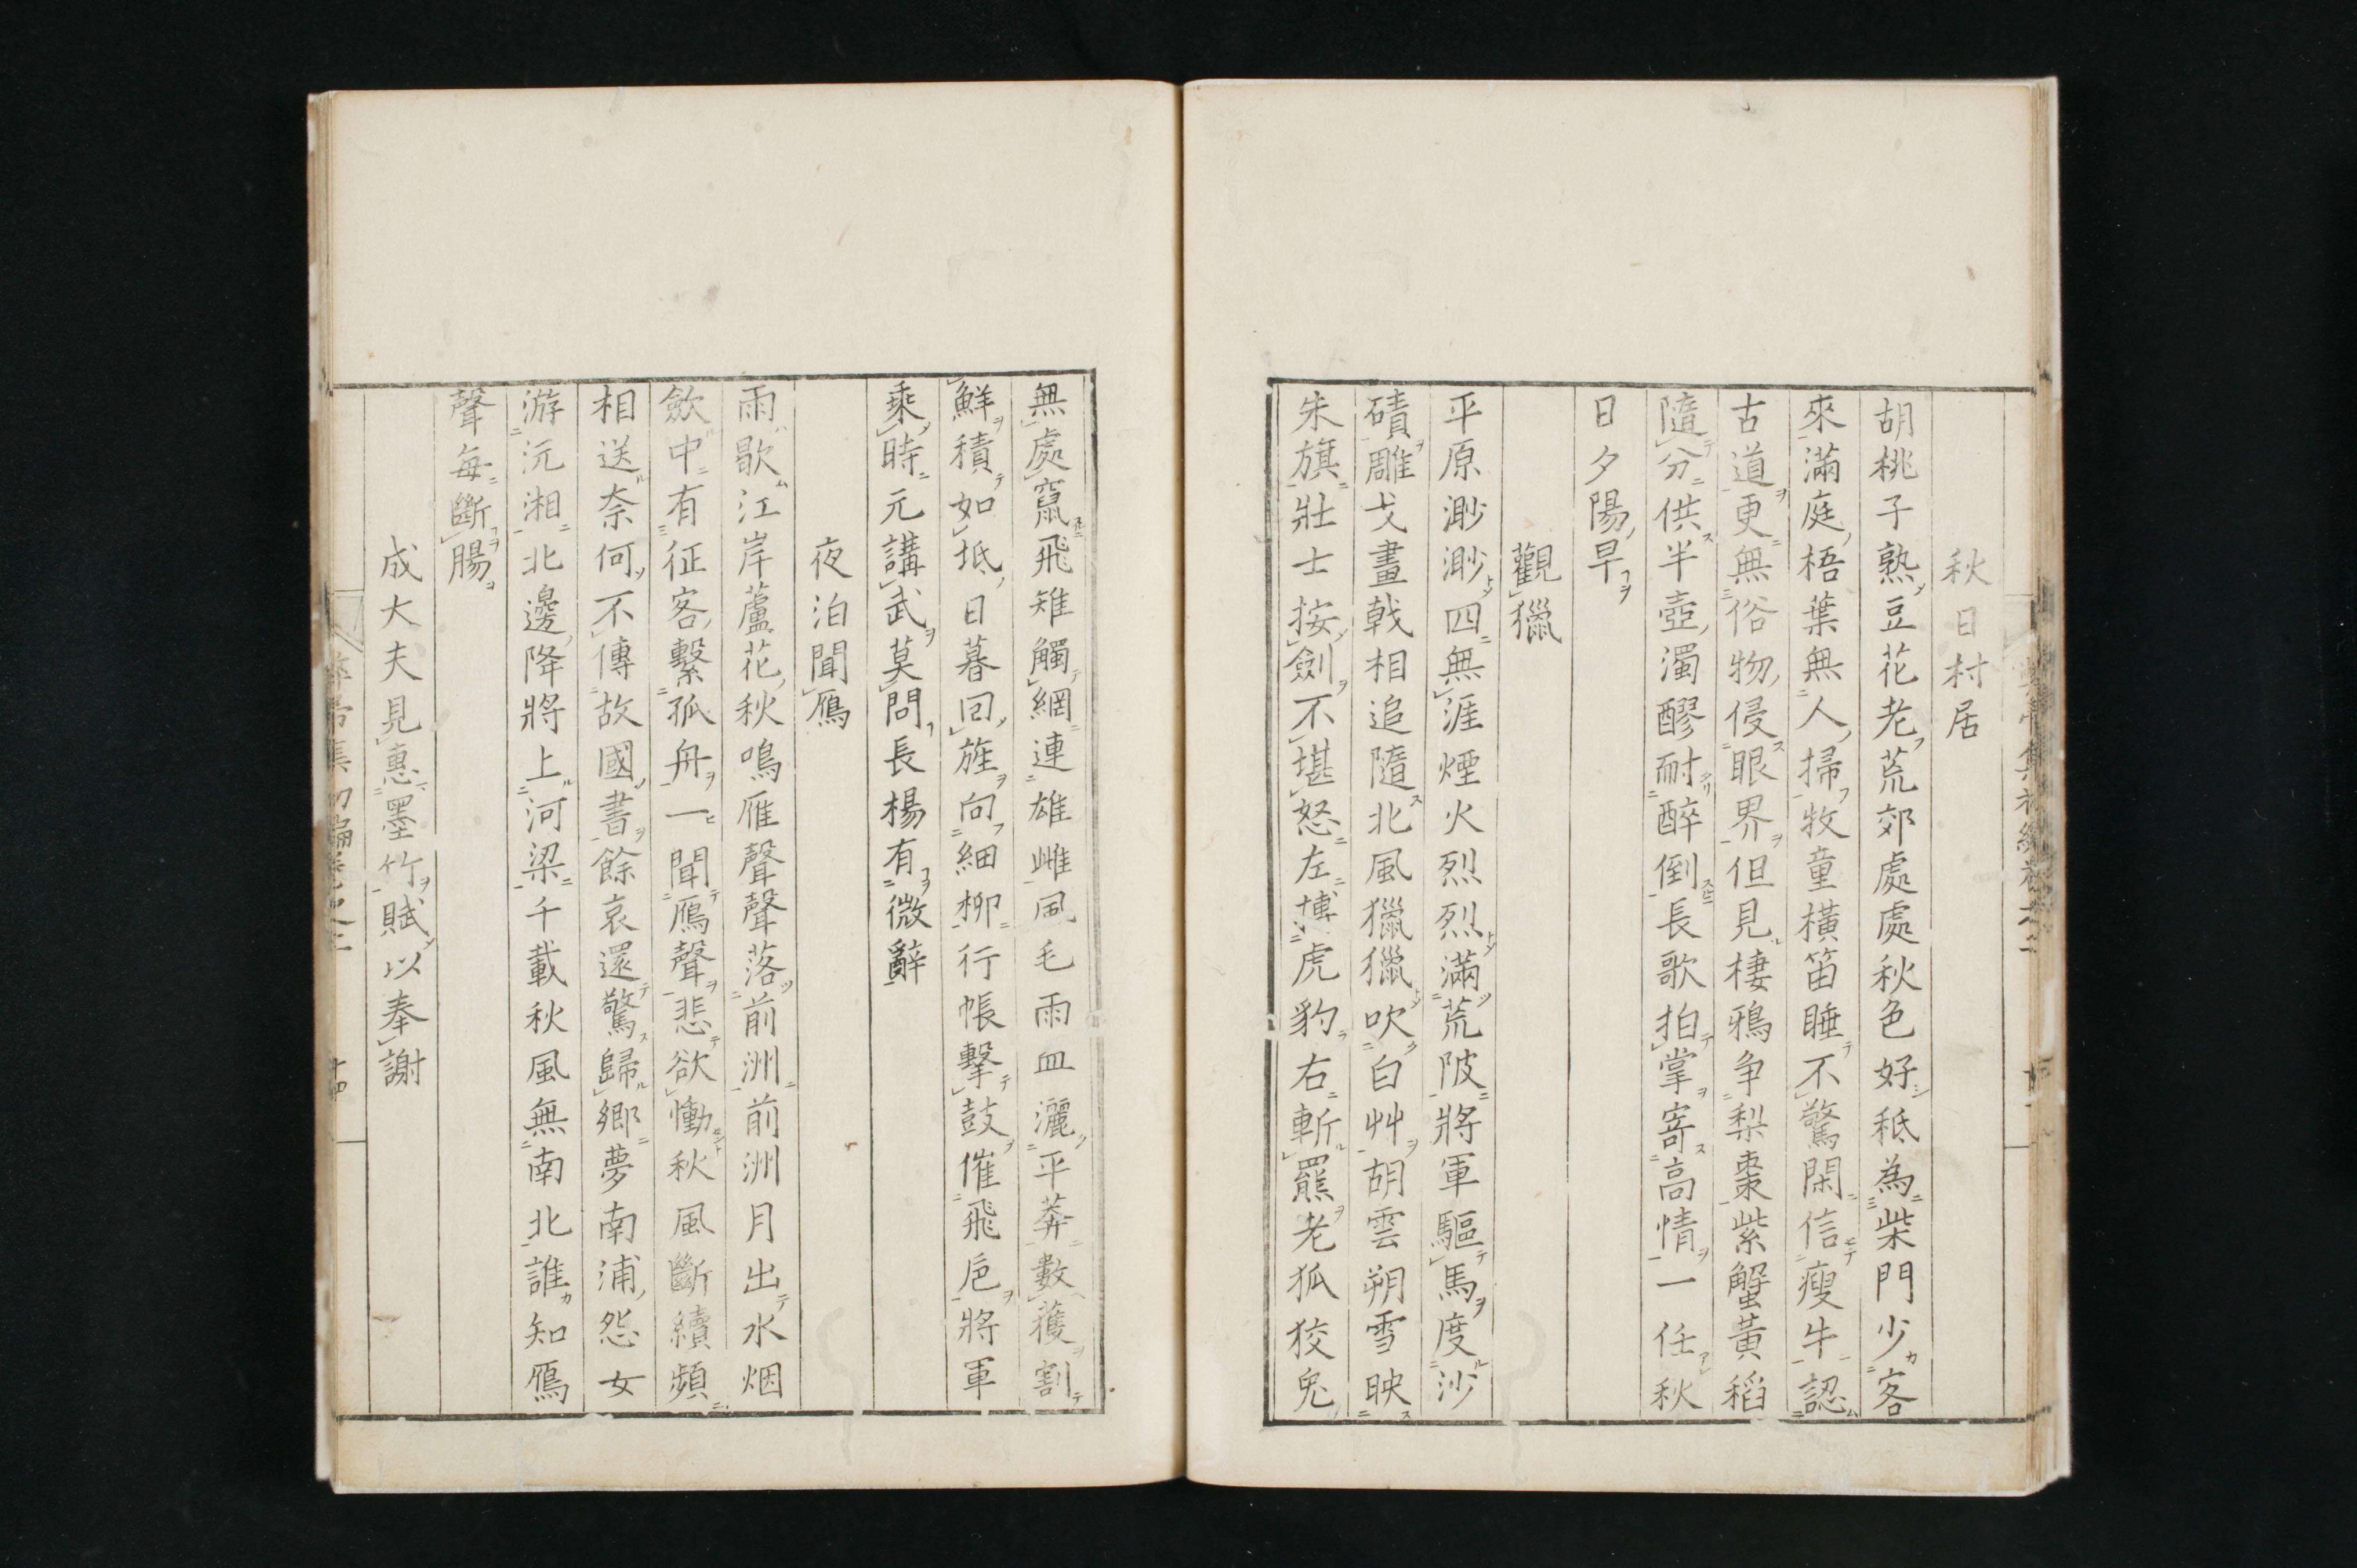 秋日村居
胡桃子熟豆花老荒郊處處秋色好秪為柴門少客
來滿庭梧葉無人掃牧童橫笛睡不驚閑信瘦牛認
古道更無俗物侵眼界但見棲鴉争梨棗紫蟹黃稻
隨分供半壺濁醪耐醉倒長歌拍掌寄高情一任秋
日夕陽早
觀獵
平原渺渺四無涯煙火烈烈滿荒陂將軍驅馬度沙
磧雕戈畫戟相追隨北風獵獵吹白艸胡雲朔雪映
朱旗壯士按劍不堪怒左搏虎豹右斬羆老狐狡兔
無處竄飛雉觸網連雄雌風毛雨血灑平莽數獲割
鮮積如坻日暮回旌向細柳行帳擊鼓催飛卮將軍
乘時元講武莫問長楊有微辭
夜泊聞鴈
雨歇江岸蘆花秋鳴雁聲聲落前洲前洲月出水烟
斂中有征客繫孤舟一聞鴈聲悲欲慟秋風斷續頻
相送奈何不傳故國書餘哀還驚歸鄉夢南浦怨女
游沅湘北邊降將上河梁千載秋風無南北誰知鴈
聲每斷腸
成大夫見惠墨竹賦以奉謝